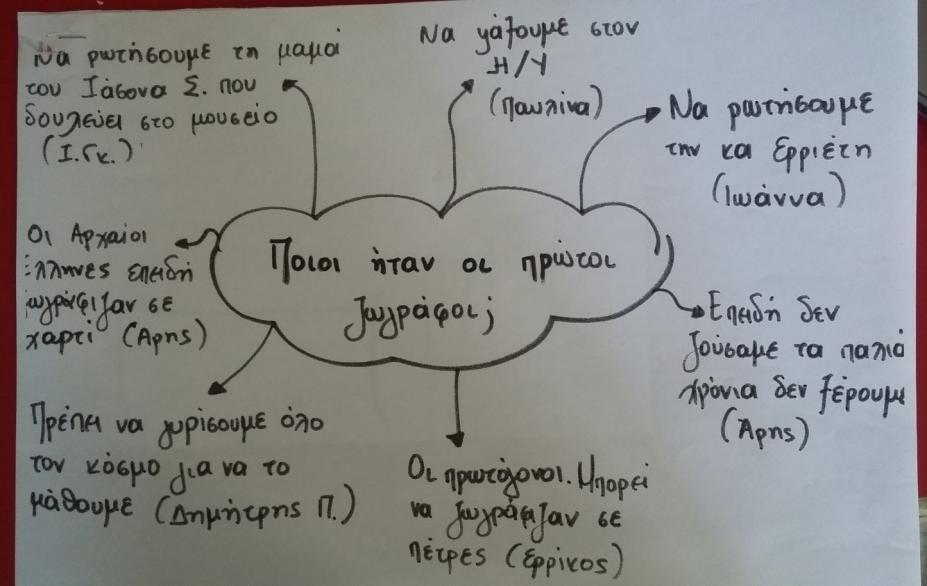 Να ρωτήσουμε τη μαμά
του Ιάσονα Σ. που
δουλεύει στο μουσείο
(Ι.Γκ.)
Να ψάξουμε στον
Η/Υ
(Παυλίνα)
Να ρωτήσουμε
την κα Ερριέτη
(Ιωάννα)
Οι Αρχαίοι
Έλληνες επειδή
ζωγράφιζαν σε
χαρτί (Άρης)
Ποιοι ήταν οι πρώτοι
ζωγράφοι;
Επειδή δεν
ζούσαμε τα παλιά
χρόνια δεν ξέρουμε
(Άρης)
Πρέπει να γυρίσουμε όλο
τον κόσμο για να το
μάθουμε (Δημήτρης Π.)
Οι πρωτόγονοι. Μπορεί
να ζωγράφιζαν σε
πέτρες (Ερρίκος)